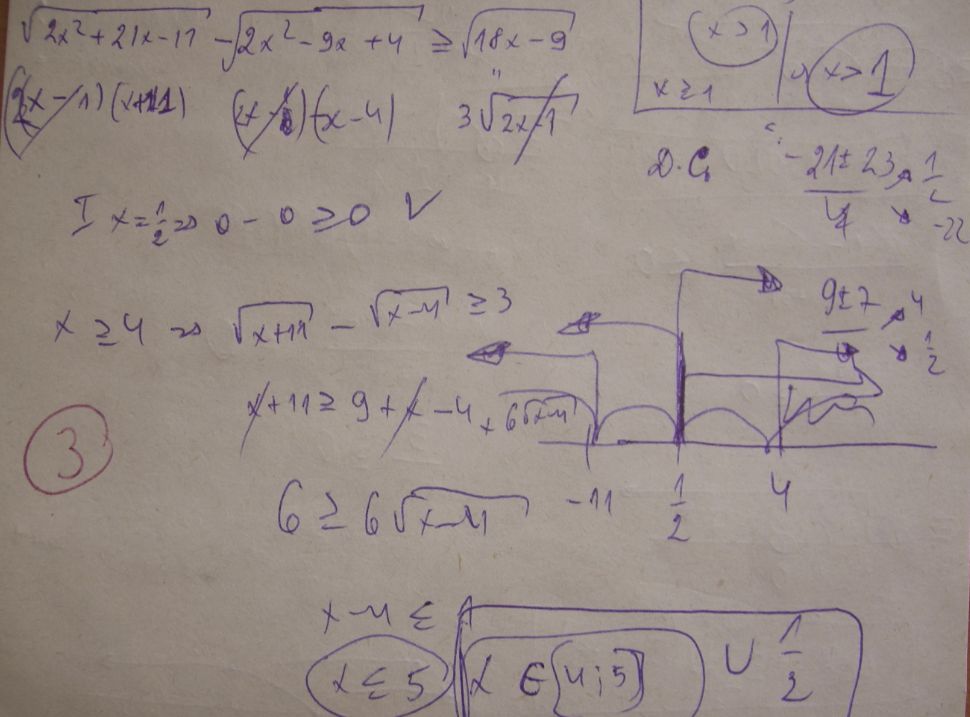 √(2x² + 21x - 11) - √(2x² - 9x + 4) ≥ √(18x - 9)
(2x - 1)(x + 11) (2x - 1)(x - 4) 3√(2x - 1)
x > 1
x ≥ 1
x > 1
-21 ± 23
4
1/2
-22
I x = 1/2 ⇒ 0 - 0 ≥ 0 √
x ≥ 4 ⇒ √(x + 11) - √(x - 4) ≥ 3
9 ± 7
4
4
1/2
x + 11 ≥ 9 + x - 4 + 6√(x - 4)
3
6 ≥ 6√(x - 4)
-11 1/2 4
x - 4 ≤ 1
x ≤ 5
x ∈ [4; 5] ∪ 1/2